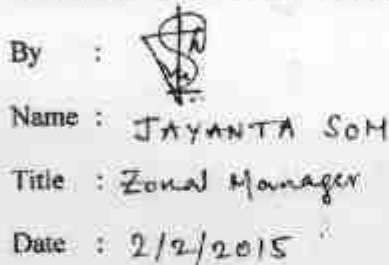 By :
Name : JAYANTA SOM
Title : Zonal Manager
Date : 2/2/2015